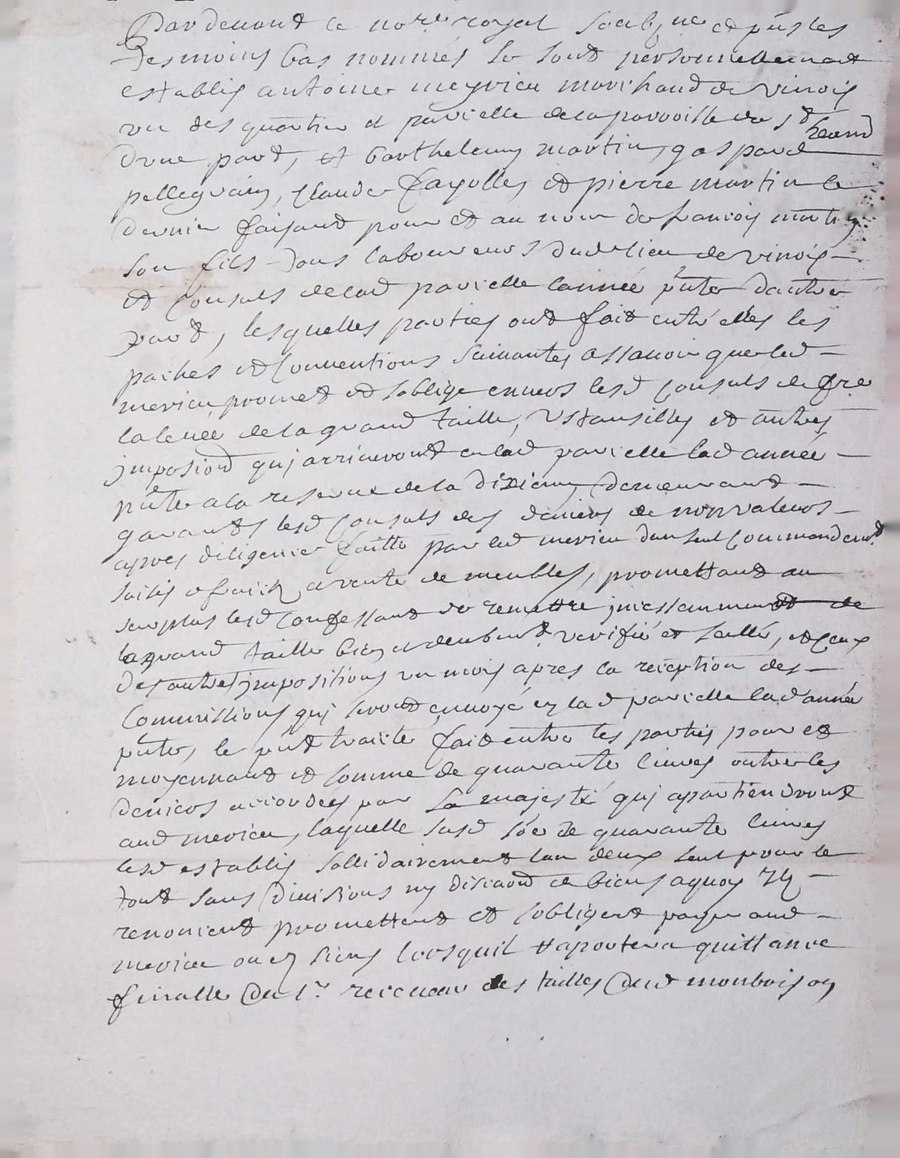 Pardevant le no.re royal soubz.né et p.ns les
tesmoins bas nommés se sont personnellement
establis antoine meyrieu marchand de vinois
un des quartier et parcelle de la parroisse de s.t
d'une part, et barthelemy martin, gaspard
pellegrain, Claude fayolle, et pierre martin le
dernier faisant pour et au nom de francois martin
son fils tous laboureurs dud. lieu de vinois
et Consuls de lad parcelle l'année p.nte d'autre
part, lesquelles parties ont fait entre elles les
paches et Conventions suivantes assavoir que led
merieu promet et s'oblige envers lesd Consuls de fre
la levée de la grand taille, Ustansilles et autres
imposiord qui arriveront en lad parcelle lad année
p.nte a la reserve de la dixieme demeurant
garants lesd Consuls des deniers de non valeurs
apres diligence faitte par led merieu d'un seul Commandem.t
saisie et vente de meubles, promettant au
surplus lesd confessant de remettre incessamment le
la grand taille bien et deubem.t verifié et scellé, et ceux
des autres impositions un mois apres la reception des
Commissions qui seront envoyé en lad parcelle lad année
p.nte, le p.nt traicté fait entre les parties pour et
moyennant et somme de quarante livres outre les
deniers accordés par sa majesté qui apartiendront
aud merieu, laquelle susd so.e de quarante livres
lesd establis sollidairement l'un deux seul pour le
tout sans divisions ny discution de biens a quoy ilz
renoncent promettent et s'obligent payer aud
merieu ou es siens lorsquil rapportera quittance
finalle du s.r receveur des tailles dud monbrison